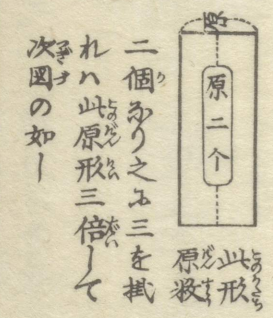 原二个
此形
原数
二個なり之に三を掛
れハ此原形三倍して
次図の如し